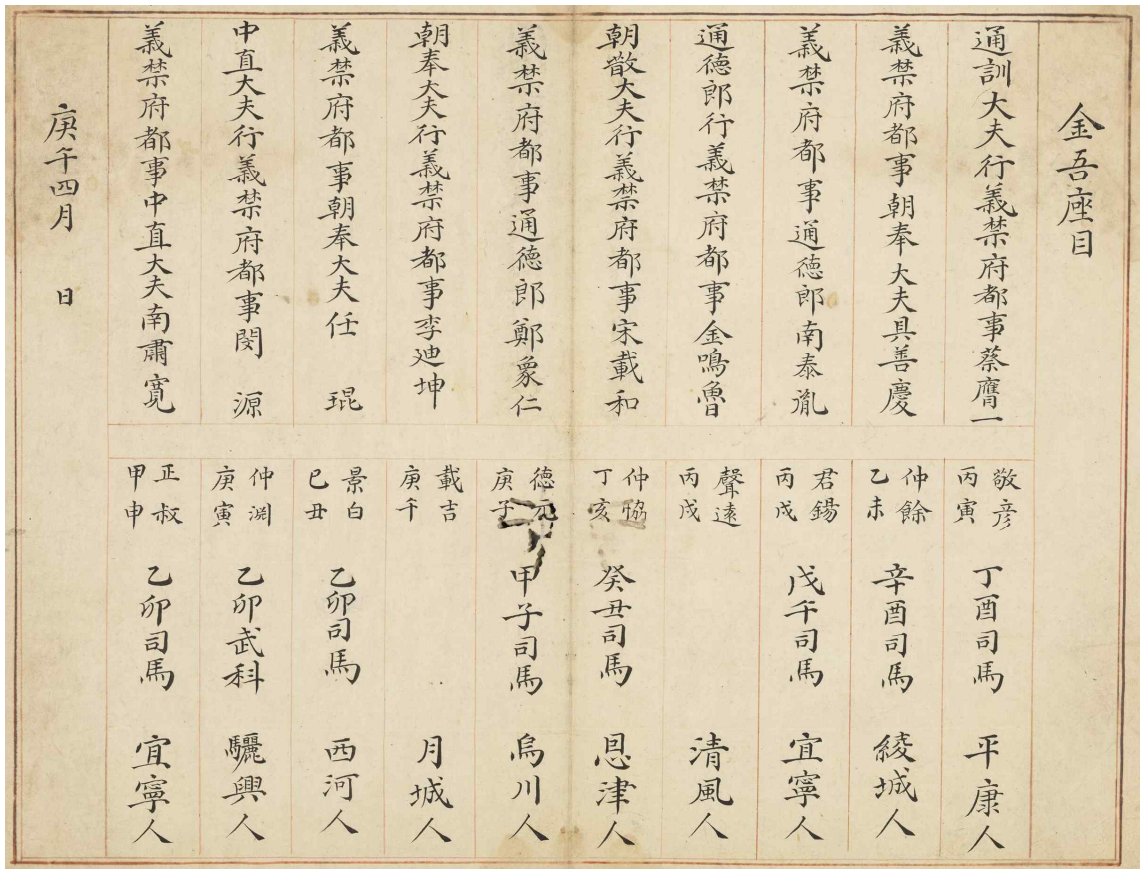 金吾座目
通訓大夫行義禁府都事蔡膺一
敬彦
丙寅
丁酉司馬
平康人
義禁府都事朝奉大夫具善慶
仲餘
乙未
辛酉司馬
綾城人
義禁府都事通德郎南泰胤
君錫
丙戌
戊午司馬
宜寧人
通德郎行義禁府都事金鳴魯
聲遠
丙戌
清風人
朝散大夫行義禁府都事宋載和
仲恊
丁亥
癸丑司馬
恩津人
義禁府都事通德郎鄭象仁
德元
庚子
甲子司馬
烏川人
朝奉大夫行義禁府都事李迪坤
載吉
庚午
月城人
義禁府都事朝奉大夫任 琨
景白
己丑
乙卯司馬
西河人
中直大夫行義禁府都事閔 源
仲淵
庚寅
乙卯武科
驪興人
義禁府都事中直大夫南肅寬
正叔
甲申
乙卯司馬
宜寧人
庚午四月 日